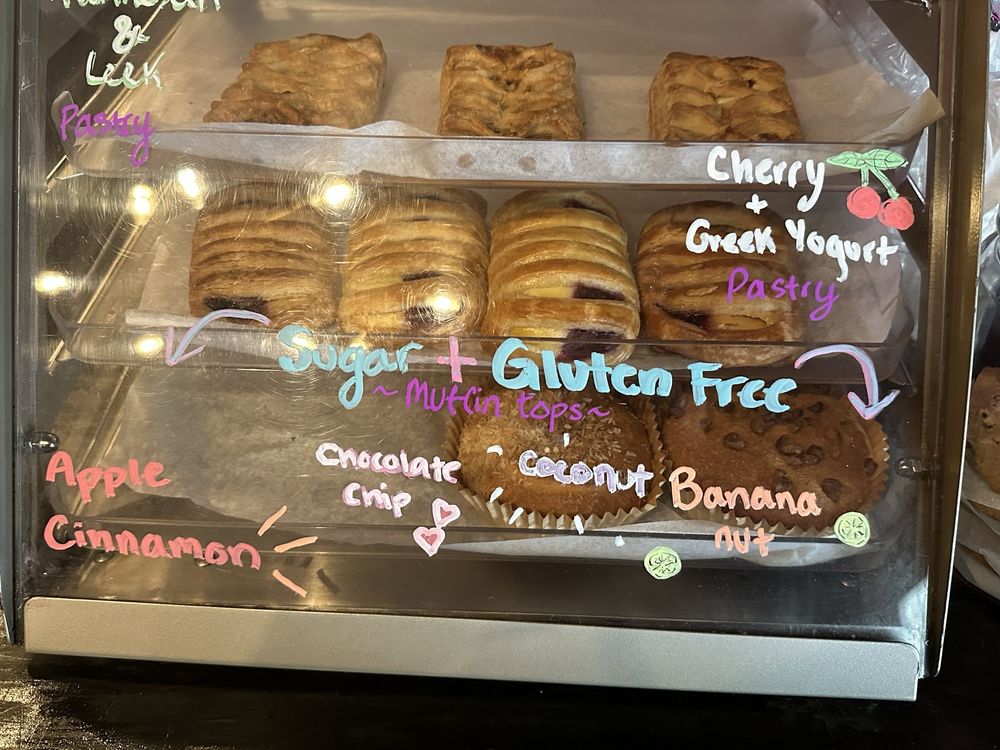 &
Leek
Pastry
Cherry
+
Greek Yogurt
Pastry
Sugar + Gluten Free
~Muffin tops~
Apple
Cinnamon
Chocolate
Chip
Coconut
Banana
nut